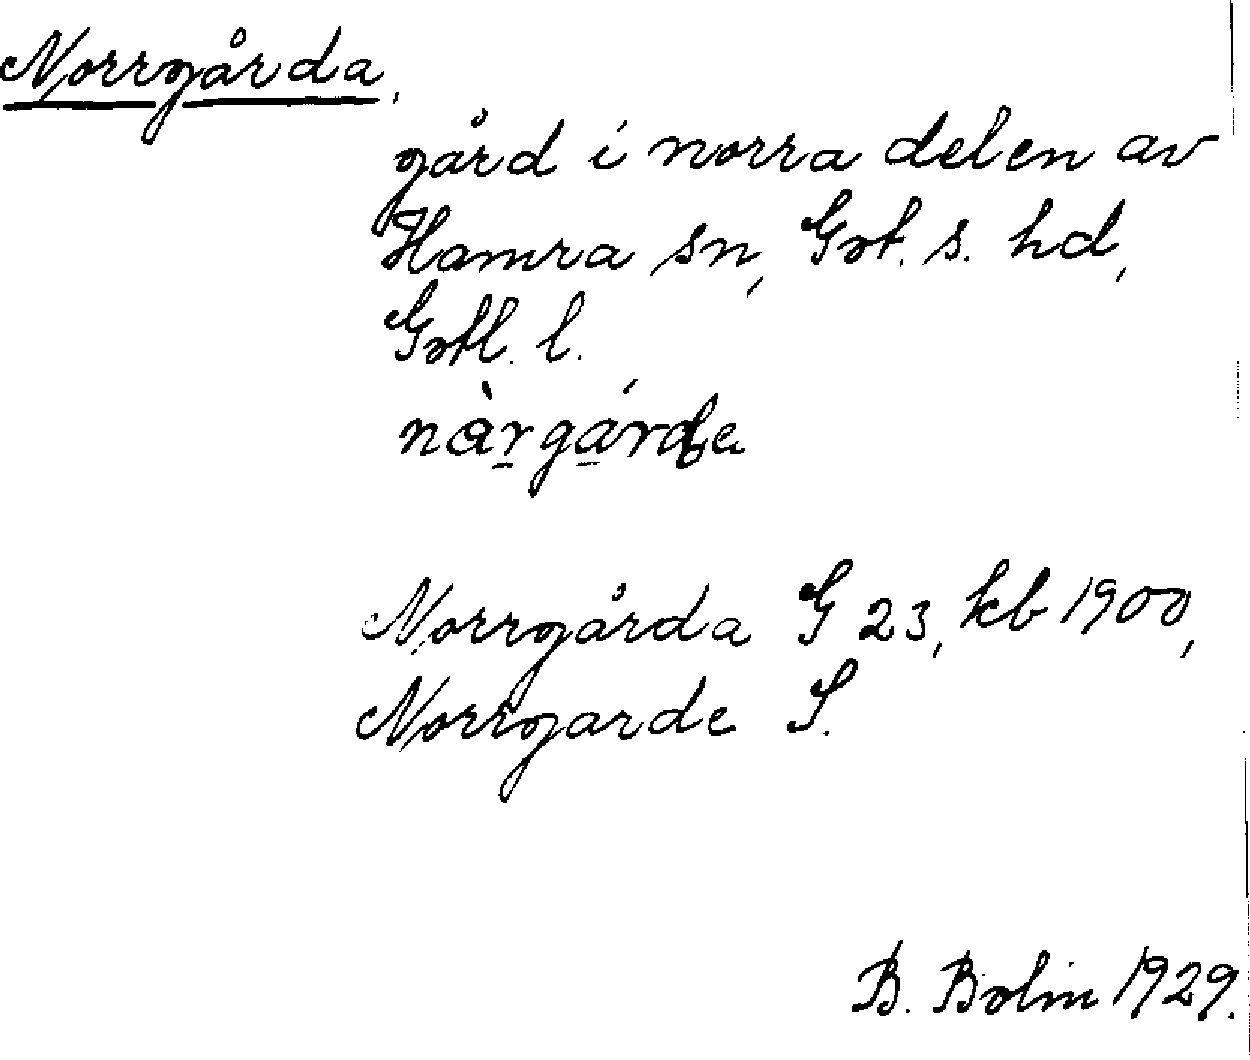 Norrgårda,
gård i norra delen av
Hamra sn, Got. s. hd,
Gotl. l.
Norrgårda G 23, kb 1900,
Norrgarde S.
B. Bolin 1929.